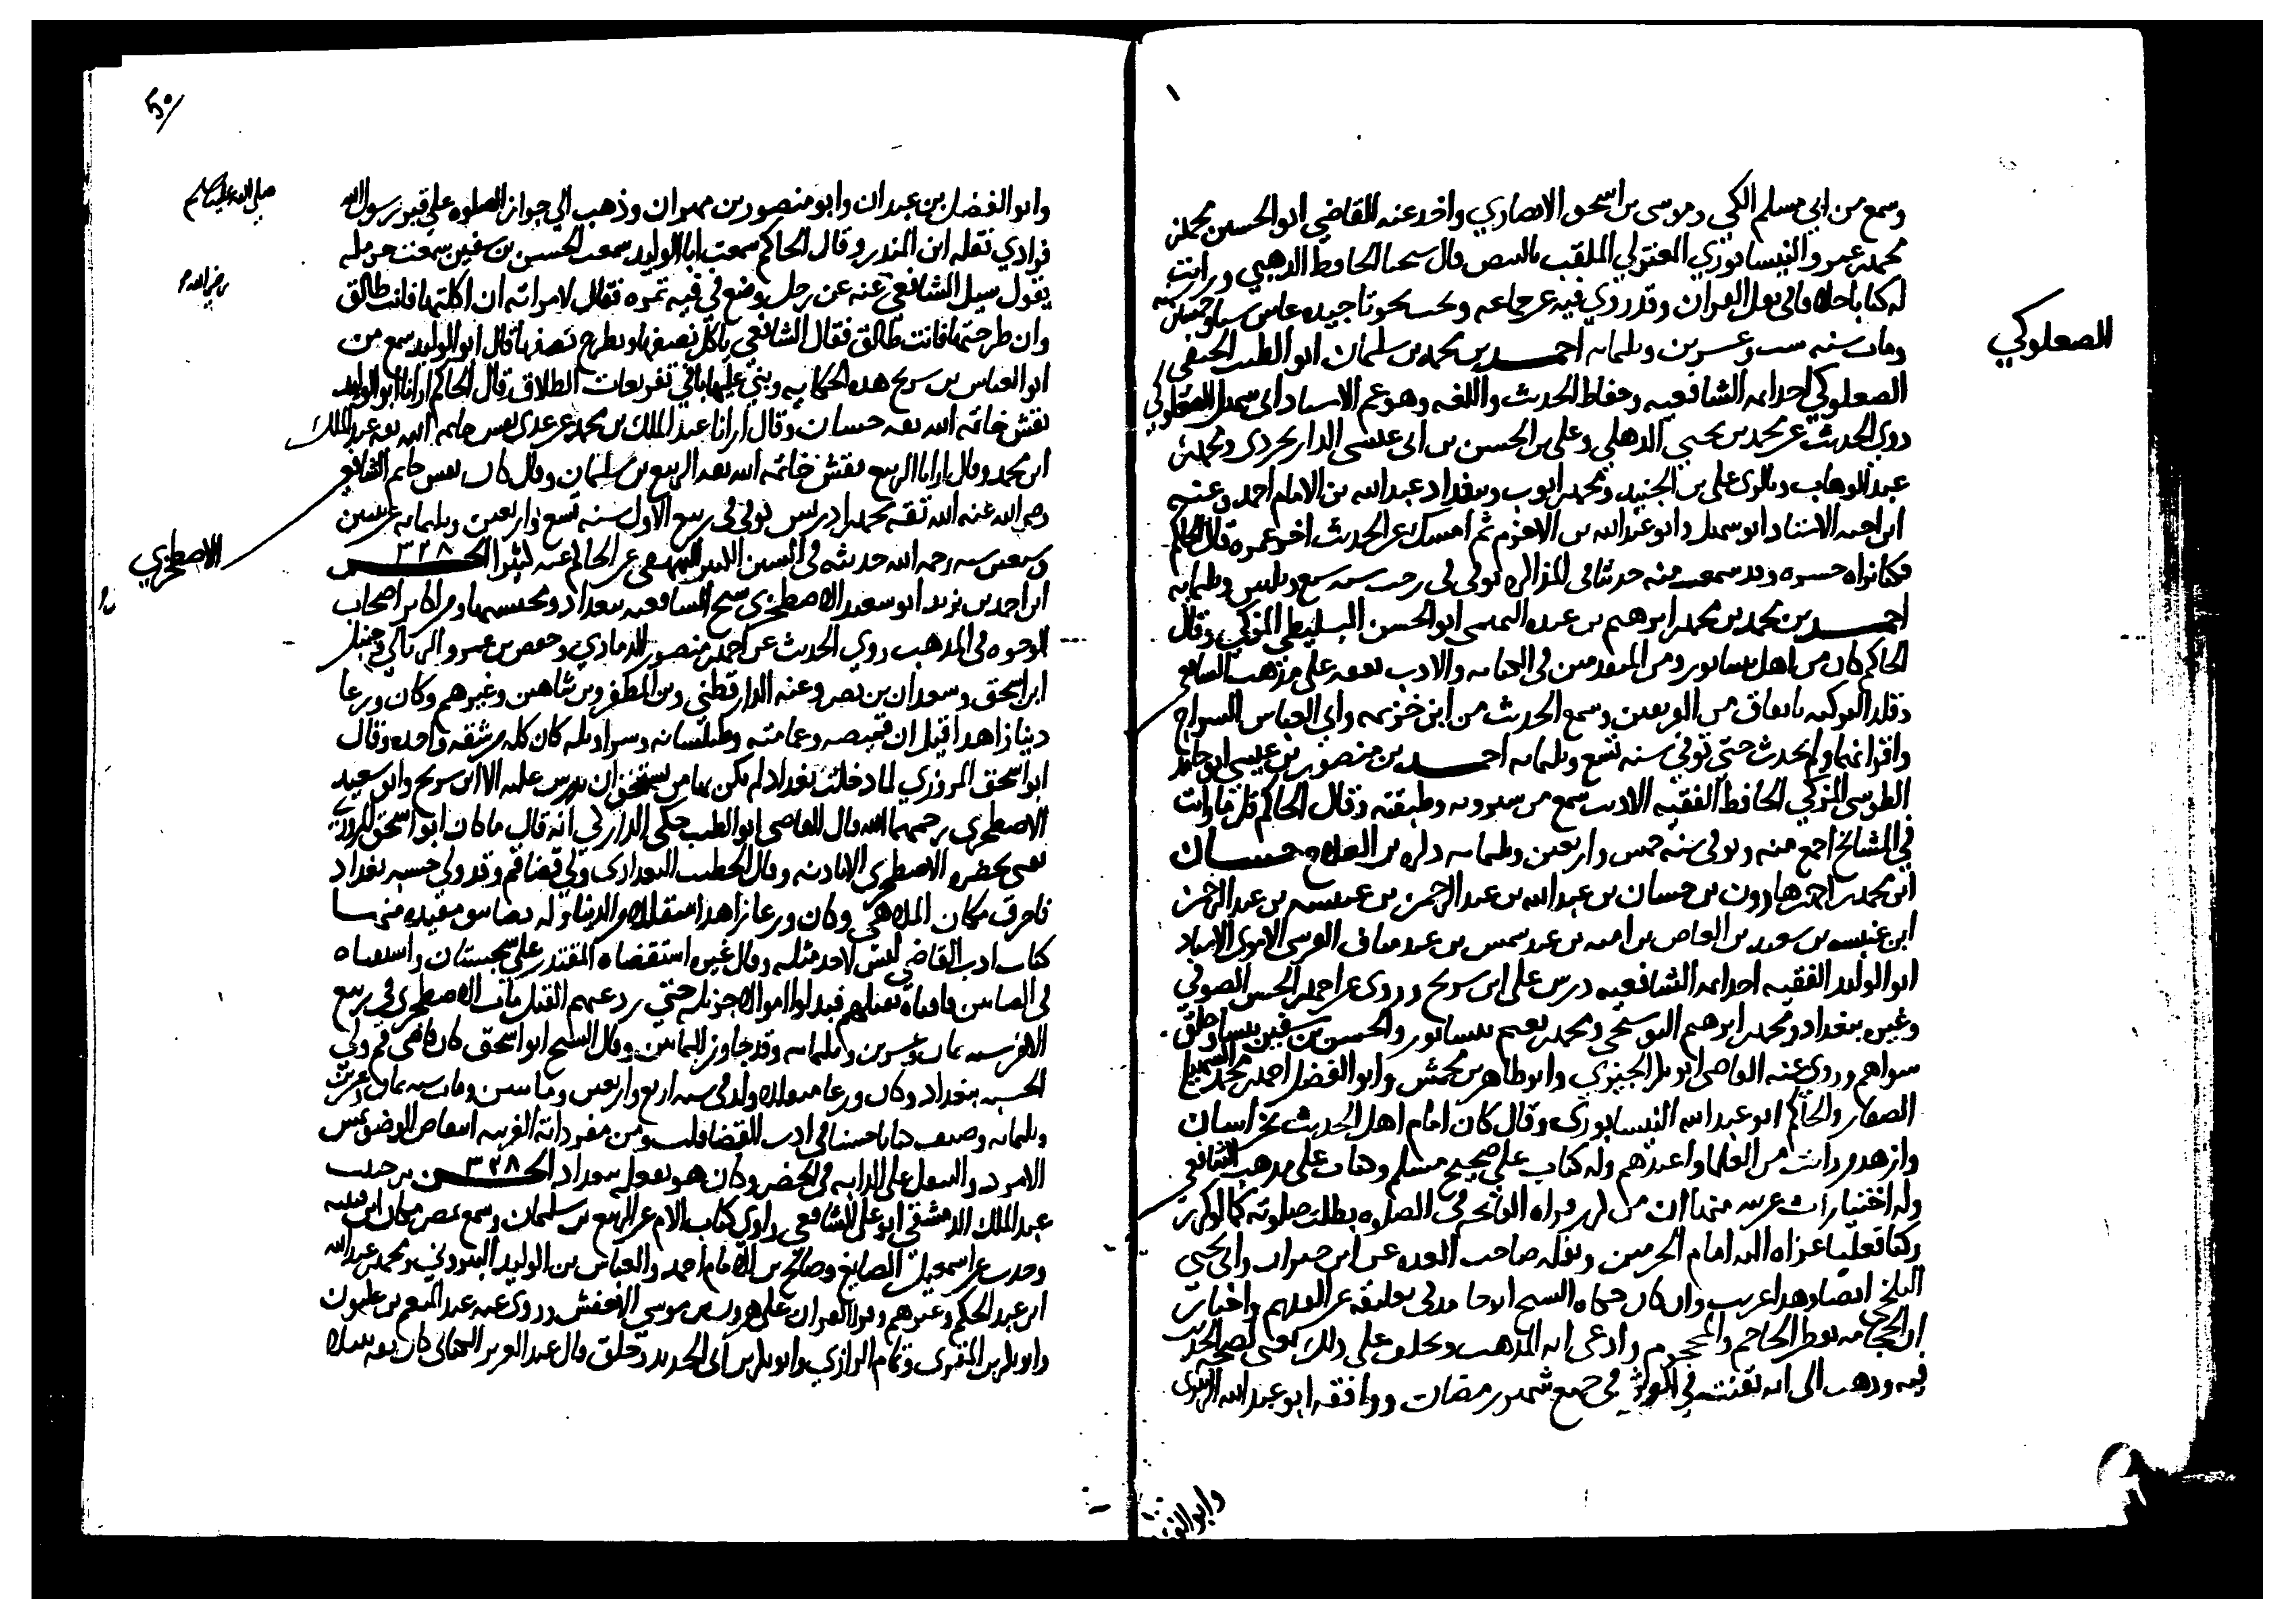 وسمع من ابي مسلم الكجي وموسى بن اسحق الانصاري واخد عنه القاضي ابو الحسين محمد بن
محمد بن عمرو النيسابوري المعتزلي الملقب قال شيخنا الحافظ الذهبي ورايت
له كتابا القران وقد روي فيه عن جماعه عاش
ومات سنه ست وعشرين وثلمايه احمد بن محمد بن سليمان ابو الطيب الحنفي
الصعلوكي
الصعلوكي احد ايمه الشافعيه وحفاظ الحديث واللغه وهو عم الاستاد ابي سهل الصعلوكي
روي الحديث عن محمد بن يحيى الذهلي وعلي بن الحسن بن ابي عيسى الدارابجردي ومحمد بن
عبد الوهاب وبالري علي بن الجنيد ومحمد بن ايوب وببغداد عبد الله بن الامام احمد وعنه
ابن اخيه الاستاد ابو سهل وابو عبد الله بن الاخرم ثم امسك عن الحديث اخر عمره قال الحاكم
وكنا نراه حسره وقد سمعت منه حدثنا في المذاكره توفي في رجب سنه سبع وثلثين وثلمايه
احمد بن محمد بن محمد بن ابرهيم بن عبده التميمي ابو الحسن السليطي المزكي وقال
الحاكم كان من اهل نيسابور ومن المتقدمين في الكتابه والادب تفقه على مذهب الشافعي
وقلد التزكيه باتفاق من الفريقين وسمع الحديث من ابن خزيمه وابي العباس السراج
واقرانهما ولم يحدث حتى توفي سنه تسع وثلمايه احمد بن منصور بن عيسى ابو حامد
الطوسي المزكي الحافظ الفقيه الاديب سمع من وطبقته وقال الحاكم قل ما رايت
في المشايخ اجمع منه وتوفي سنه خمس واربعين وثلمايه ذكره بن الصلاح حسان
ابن محمد بن احمد بن هارون بن حسان بن عبد الله بن عبد الرحمن بن عنبسه بن عبد الرحمن
ابن عنبسه بن سعيد بن العاص بن اميه بن عبد شمس بن عبد مناف القرشي الاموي الاستاد
ابو الوليد الفقيه احد ايمه الشافعيه درس على ابن سريح وروى عن احمد بن الحسن الصوفي
وغيره ببغداد ومحمد بن ابرهيم البوسنجي ومحمد بن نعيم بنيسابور والحسن بن سفين بنسا وخلق
سواهم وروى عنه القاضي ابو بكر الحيري وابو طاهر بن محمش وابو الفضل احمد بن محمد السهلي
الصفار والحاكم ابو عبد الله النيسابوري وقال كان امام اهل الحديث بخراسان
وازهد من رايت من العلما واعبدهم وله كتاب على صحيح مسلم وكتاب على مذهب الشافعي
وله اختيارات غريبه منها ان من كرر قراه الفاتحه في الصلوه بطلت صلوته كما لو كرر
ركنا فعليا عزاه اليه امام الحرمين ونقله صاحب العده عن ابن خيران وابي يحيى
البلخي ايضا وهذا غريب وان كان حكاه الشيخ ابو حامد في تعليقه عن القديم واختار
ان الحجامه تفطر الحاجم والمحجوم وادعى انه المذهب وحلف على ذلك يعني لصحه الحديث
فيه وذهب الى انه يقنت في الوتر في جميع شهر رمضان ووافقه ابو عبد الله الزبيري
وابو الفضل
50
وابو الفضل بن عبدان وابو منصور بن مهران وذهب الي جواز الصلوه على قبر رسول الله
صلى الله عليه وسلم
فرادي نقله ابن المنذر وقال الحاكم سمعت ابا الوليد سمعت الحسن بن سفين سمعت حرمله
يقول سيل الشافعي عنه عن رجل وضع في فيه تمره فقال لامراته ان اكلتها فانت طالق
رضي الله
وان طرحتها فانت طالق فقال الشافعي ياكل نصفها ويطرح نصفها قال ابو الوليد سمع من
ابو العباس بن سريج هذه الحكايه وبني عليها باقي تفريعات الطلاق قال الحاكم ارانا ابو الوليد
نقش خاتمه الله ثقه حسان وقال ارانا عبد الملك بن محمد بن عدي نقش خاتمه الله ثقه عبد الملك
ابن محمد وقال ارانا الربيع نقش خاتمه الله ثقه الربيع بن سليمان وقال كان نقش خاتم الشافعي
رضي الله عنه الله ثقه محمد بن ادريس توفي في ربيع الاول سنه تسع واربعين وثلمايه عن ثنتين
وسبعين سنه رحمه الله حديثه في السنن الكبير للبيهقي عن الحاكم عنه كثيرا الحسن ٣٢٨
الاصطخري
ابن احمد بن يزيد ابو سعيد الاصطخري شيخ الشافعيه ببغداد ومحتسبها ومن اكابر اصحاب
الوجوه في المذهب روي الحديث عن احمد بن منصور الرمادي وحفص بن عمرو الربالي وحنبل
ابن اسحق وسعدان بن نصر وعنه الدارقطني وبن المظفر وبن شاهين وغيرهم وكان ورعا
دينا زاهدا قيل ان قميصه وعمامته وطيلسانه وسراويله كان كله من شقه واحده وقال
ابو اسحق المروزي لما دخلت بغداد لم يكن بها من يستحق ان يدرس عليه الا ابن سريج وابو سعيد
الاصطخري رحمهما الله قال القاضي ابو الطيب حكى الداركي انه قال ما كان ابو اسحق المروزي
يفتي بحضره الاصطخري الا باذنه وقال الخطيب البغدادي ولي قضا قم وقد ولي حسبه بغداد
فاحرق مكان الملاهي وكان ورعا زاهدا متقللا من الدنيا وله تصانيف مفيده منها
كتاب ادب القاضي ليس لاحد مثله وقال غيره استقضاه المقتدر على سجستان واستفتاه
في الصابين فافتاه بقتلهم فبذلوا اموالا جزيله حتى ردعنهم القتل مات الاصطخري في ربيع
الاخر سنه ثمان وعشرين وثلمايه وقد جاوز الثمانين وقال الشيخ ابو اسحق كان قاضي قم وولي
الحسبه ببغداد وكان ورعا متقللا ولد في سنه اربع واربعين ومايتين ومات سنه ثمان وعشرين
وثلمايه وصنف كتابا حسنا في ادب القضا قلت ومن مفرداته الغريبه انتقاض الوضو بمس
الامرد والتنفل على الدابه في الحضر وكان هو يفعله ببغداد الحسن بن حبيب ٣٢٨
عبد الملك الدمشقي ابو علي الشافعي راوي كتاب الام عن الربيع بن سليمان وسمع بمصر بكار بن قتيبه
وحدث عن اسمعيل الصايغ وصالح بن الامام احمد والعباس بن الوليد البيروتي ومحمد بن عبد الله
ابن عبد الحكم وغيرهم وقرا القران على هرون بن موسى الاخفش وروى عنه عبد المنعم بن غلبون
وابو بكر بن المقرى وتمام الرازي وابو بكر بن ابي الحديد وخلق قال عبد العزيز الكتاني كان ثقه نبيلا